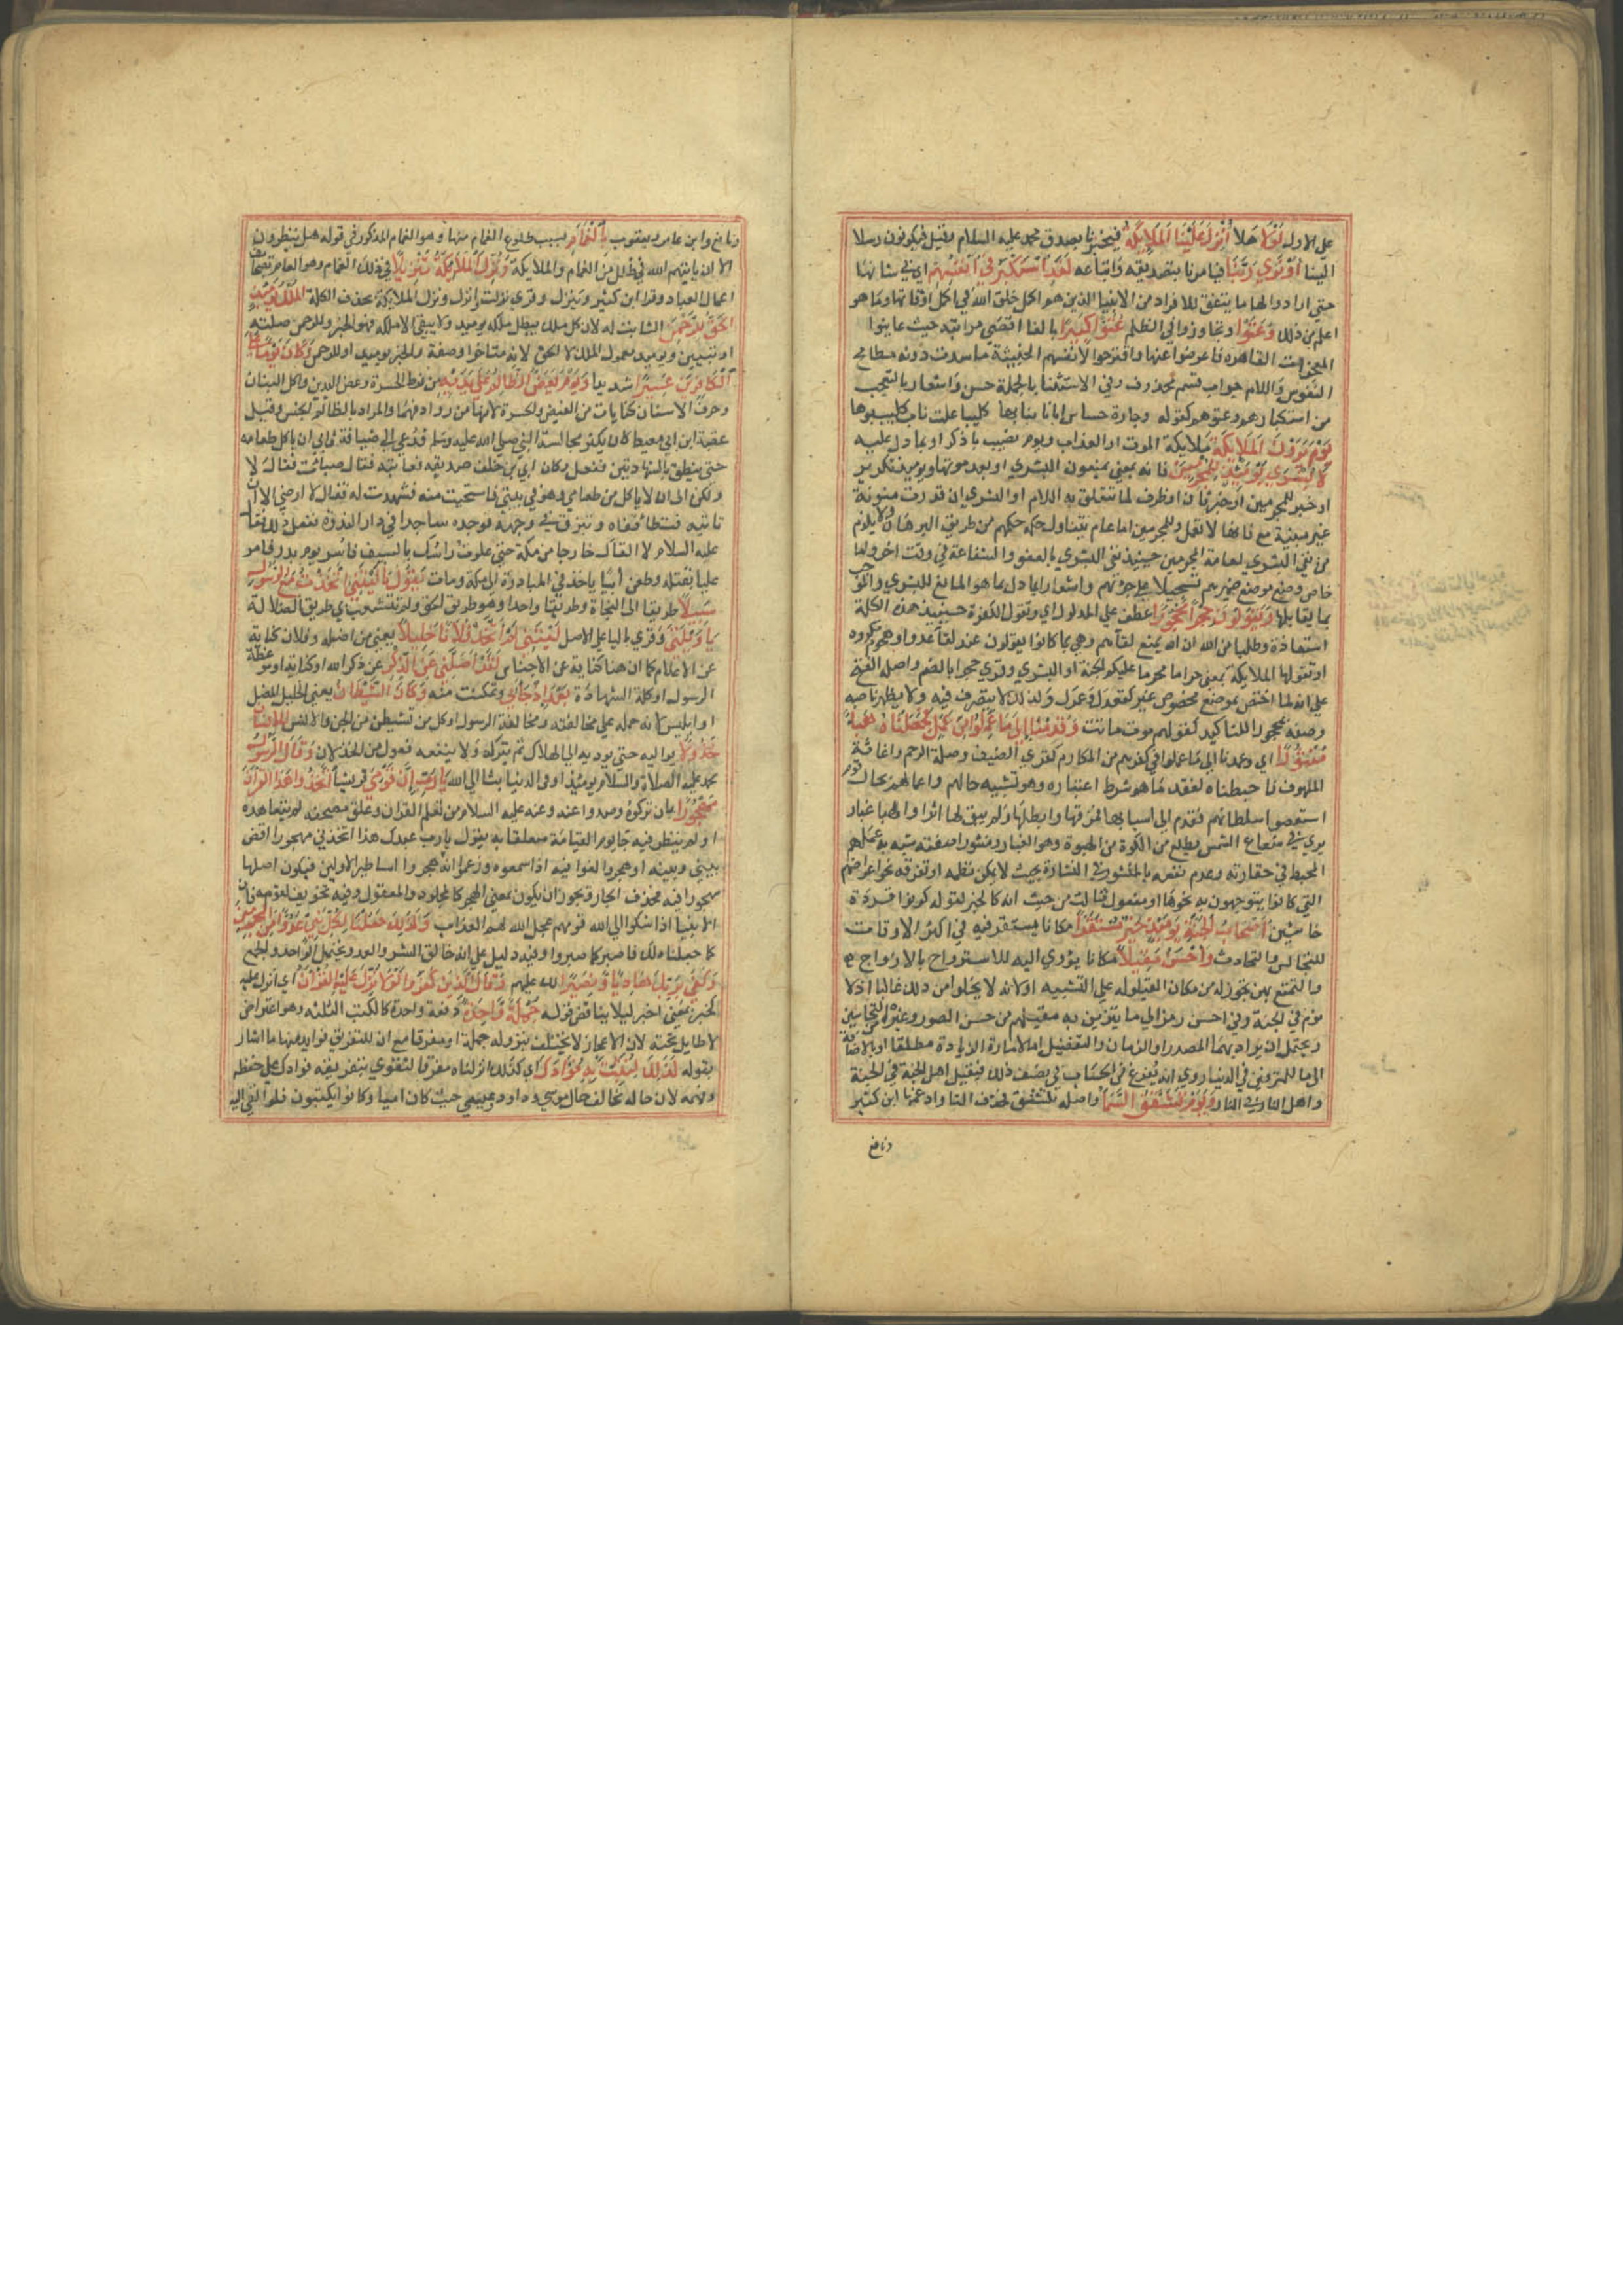 على الاول لولا هلا أنزل علينا الملايكة فيخبرنا بصدق محمد عليه السلام وقيل فيكونون رسلا
الينا أو نرى ربنا فيامرنا بتصديقه واتباعه لقد استكبروا في انفسهم اي في شانها
حتى ارادوا لها ما يتفق للافراد من الانبيا الذين هم اكمل خلق الله في اكمل اوقاتها وما هو
اعلم من ذلك وعتوا وتجاوزوا في الظلم عتوا كبيرا بالغا اقصى مراتبه حيث عاينوا
المعجزات القاهرة فاعرضوا عنها واقترحوا لانفسهم الخبيثة ما سدت دونه مطامح
النفوس واللام جواب قسم محذوف وفي الاستثنا بالجملة حسن واشعار بالتعجب
من استكبارهم وعتوهم كقوله وجارة جساس ابانا بنابها كليبا علت ناب كليب بواها
يوم يرون الملايكة ملايكة الموت او العذاب ويوم نصب باذكر او بما دل عليه
لا بشرى يوميذ للمجرمين فانه بمعنى يمنعون البشرى او يعدمونها ويوميذ تكرير
او خبر وللمجرمين او خبر ثان او ظرف لما تتعلق به اللام او البشرى ان قدرت منونة
غير مبنية مع لا فانها لا تعمل وللمجرمين اما عام يتناول حكمه حكمهم من طريق البرهان ولا يلزم
من نفي البشرى لعامة المجرمين حينيذ نفي البشرى بالعفو والشفاعة في وقت اخر واما
خاص وضع موضع ضميرهم تسجيلا على جرمهم واشعارا بما هو المانع للبشرى والموجب
بما يقابلها ويقولون حجرا محجورا عطف على المدلول اي ويقول الكفرة حينيذ هذه الكلمة
استعاذة وطلبا من الله ان يمنع لقاهم وهي مما كانوا يقولون عند لقا عدو او هجوم مكروه
او تقولها الملايكة بمعنى حراما محرما عليكم الجنة او البشرى وقرئ حجرا بالضم واصله الفتح
غير انه لما اختص بموضع مخصوص غير كقعدك وعمرك ولذلك لا يتصرف فيه ولا يظهر ناصبه
وصفه محجورا للتاكيد كقولهم موت مائت وقدمنا إلى ما عملوا من عمل فجعلناه هباء
منثورا اي وعمدنا الى ما عملوا في كفرهم من المكارم كقرى الضيف وصلة الرحم واغاثة
الملهوف فاحبطناه لفقد ما هو شرط اعتباره وهو تشبيه حالهم واعمالهم بحال قوم
استعصوا سلطانهم فقدم الى اسبابهم فمزقها وابطلها ولم يبق لها اثرا والهبا غبار
يرى في شعاع الشمس يطلع من الكوة من الهبوة وهو الغبار ومنثورا صفته شبه به عملهم
المحبط في حقارته وعدم نفعه ثم بالمنثور في انتشاره بحيث لا يمكن نظمه او تفرقه نحو اغراضهم
التي كانوا يتوجهون به نحوها او مفعول ثالث من حيث انه كالخبر كقوله كونوا قردة
خاسئين أصحاب الجنة يوميذ خير مستقرا مكانا يستقر فيه في اكثر الاوقات
للتجالس والتحادث وأحسن مقيلا مكانا يؤوى اليه للاسترواح بالازواج
والتمتع بهن تجوزا له من مكان القيلولة على التشبيه او لانه لا يخلوا من ذلك غالبا اذ لا
نوم في الجنة وفي احسن رمز الى ما يتزين به مقيلهم من حسن الصور وغيره من التحاسين
ويحتمل ان يراد بهما المصدر او الزمان والتفضيل اما لارادة الزيادة مطلقا او بالاضافة
الى ما للمترفين في الدنيا روي انه يفرغ من الحساب في نصف ذلك فيقيل اهل الجنة في الجنة
واهل النار في النار ويوم تشقق السما واصله تتشقق فحذف التا وادغمها ابن كثير
ونافع
ونافع وابن عامر ويعقوب بالغمام بسبب طلوع الغمام منها وهو الغمام المذكور في قوله هل ينظرون
الا ان ياتيهم الله في ظلل من الغمام والملايكة ونزل الملايكة تنزيلا في ذلك الغمام وهو العام بصحائف
اعمال العباد وقرا ابن كثير وننزل وقرئ نزلت وانزل ونزل الملايكة بحذف الكلمة الملك يوميذ
الحق للرحمن الثابت له لان كل ملك يبطل ملكه يوميذ ولا يبقى الا ملكه فهو الخبر وللرحمن صلته
او تبيين ويوميذ معمول الملك لا الحق لانه متاخر او صفة والخبر يوميذ او للرحمن وكان يوما على
الكافرين عسيرا شديدا ويوم يعض الظالم على يديه من فرط الحسرة وعض اليدين واكل البنان
وحرق الاسنان كنايات من الغيض والحسرة لانها من روادفهما والمراد بالظالم الجنس وقيل
عقبة ابن ابي معيط كان يكثر مجالسة النبي صلى الله عليه وسلم فدعي الى ضيافة فابى ان ياكل طعامه
حتى ينطق بالشهادتين ففعل وكان ابي بن خلف صديقه فعاتبه فقال صبات فقال لا
ولكن الى ان لا ياكل من طعامي وهو في بيتي فاستحيت منه فشهدت له فقال لا ارضى الا ان
تاتيه فتطا قفاه وتبزق في وجهه فوجده ساجدا في دار الندوة ففعل ذلك فقال
عليه السلام لا القاك خارجا من مكة حتى علوت راسك بالسيف فاسر يوم بدر فامر
عليا بقتله وطعن أبيا باحد في المبارزة الى مكة ومات يقول يا ليتني اتخذت مع الرسول
سبيلا طريقا الى النجاة وطريقا واحدا وهو طريق الحق ولم تتشعب بي طريق الضلالة
يا ويلتى وقرئ باليا على الاصل ليتني لم أتخذ فلانا خليلا يعني من اضله وفلان كناية
عن الاعلام كما ان هنا كناية عن الاجناس لقد أضلني عن الذكر عن ذكر الله او كتابه او موعظة
الرسول او كلمة الشهادة بعد إذ جاءني وتمكنت منه وكان الشيطان يعني الخليل المضل
او ابليس لانه حمله على مخالفته ومخالفة الرسول او كل من تشيطن من الجن والانس للانسان
خذولا يواليه حتى يوديه الى الهلاك ثم يتركه ولا ينفعه فعول من الخذلان وقال الرسول
محمد عليه الصلاة والسلام يوميذ او في الدنيا بثا الى الله يا رب إن قومي قريشا اتخذوا هذا القران
مهجورا بان تركوه وصدوا عنه وعنه عليه السلام من تعلم القران وعلق مصحفه لم يتعاهده
ولم ينظر فيه جا يوم القيامة متعلقا به يقول يا رب عبدك هذا اتخذني مهجورا اقض
بيني وبينه او هجروا لغوا فيه اذا سمعوه وزعموا انه هجر واساطير الاولين فيكون اصله
مهجورا فيه فحذف الجار ويجوز ان يكون بمعنى الهجر كالمجلود والمعقول وفيه تخويف لقومه فان
الانبيا اذا شكوا الى الله قومهم عجل الله لهم العذاب وكذلك جعلنا لكل نبي عدوا من المجرمين
كما جعلنا ذلك فاصبر كما صبروا وفيه دليل على انه خالق الشر والعدو يحتمل الواحد والجمع
وكفى بربك هاديا ونصيرا لك عليهم وقال الذين كفروا لولا نزل عليه القرآن اي انزل عليه
كخبر بمعنى اخبر ليلا يناقض قوله جملة واحدة دفعة واحدة كالكتب الثلثة وهو اعتراض
لا طايل تحته لان الاعجاز لا يختلف بنزوله جملة او مفرقا مع ان للتفريق فوايد منها ما اشار
بقوله كذلك لنثبت به فؤادك اي كذلك انزلناه مفرقا لنقوي بتفريقه فؤادك على حفظه
وفهمه لان حاله تخالف حال موسى وداود وعيسى حيث كان اميا وكانوا يكتبون فلو القى اليه